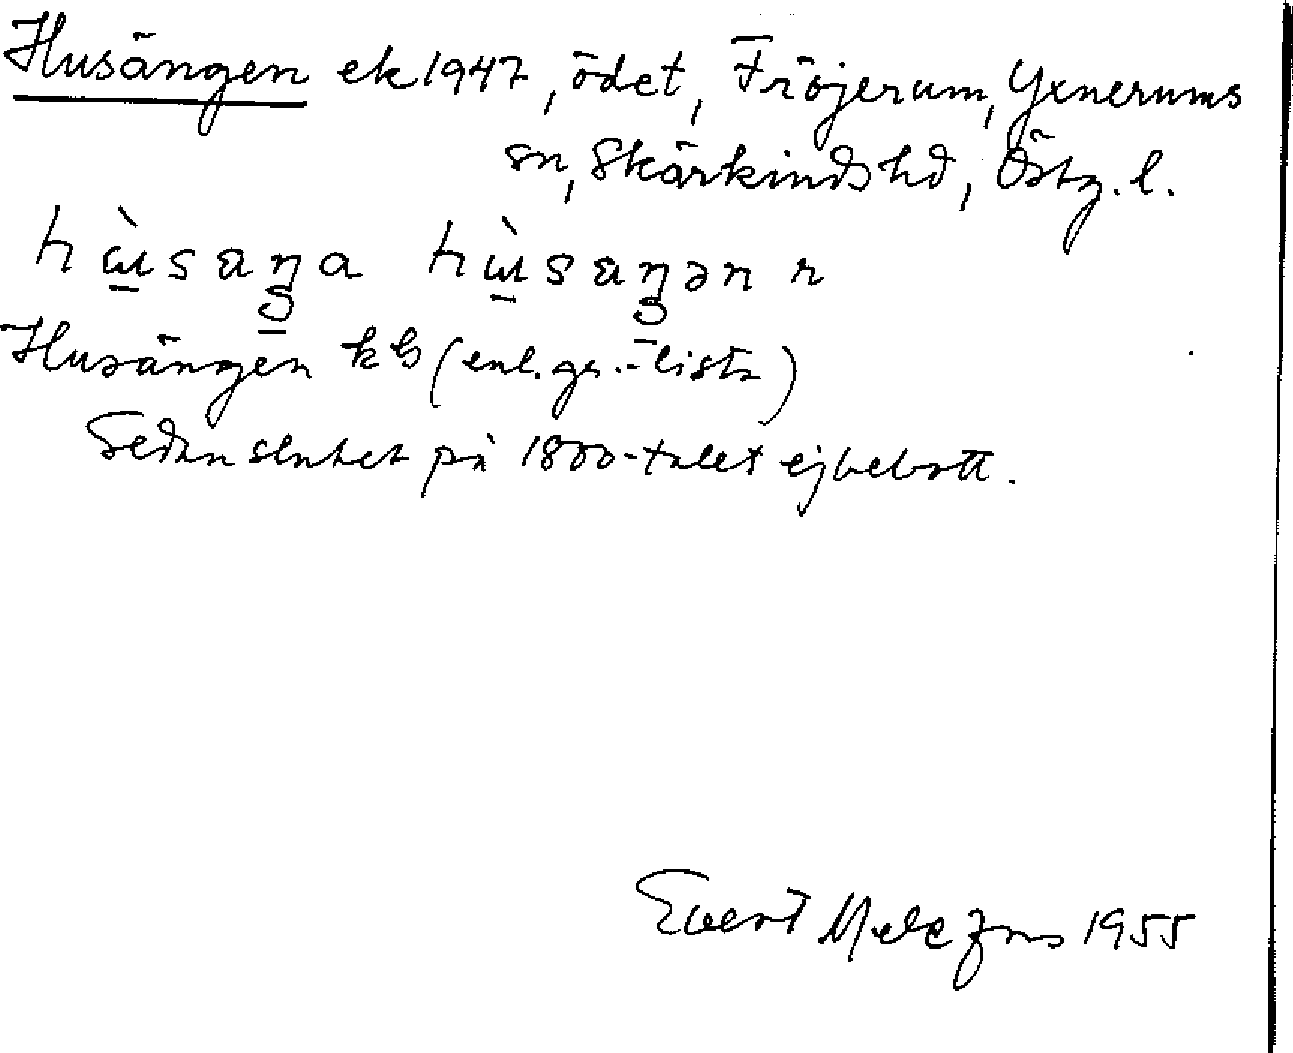 Husängen ek 1947, ödet, Fröjerum, Yxnerums
sn, Skärkinds hd, Östg. l.
Husängen kb (enl. gs.-lista)
Sedan slutet på 1800-talet ej bebott.
Evert Melefors 1955